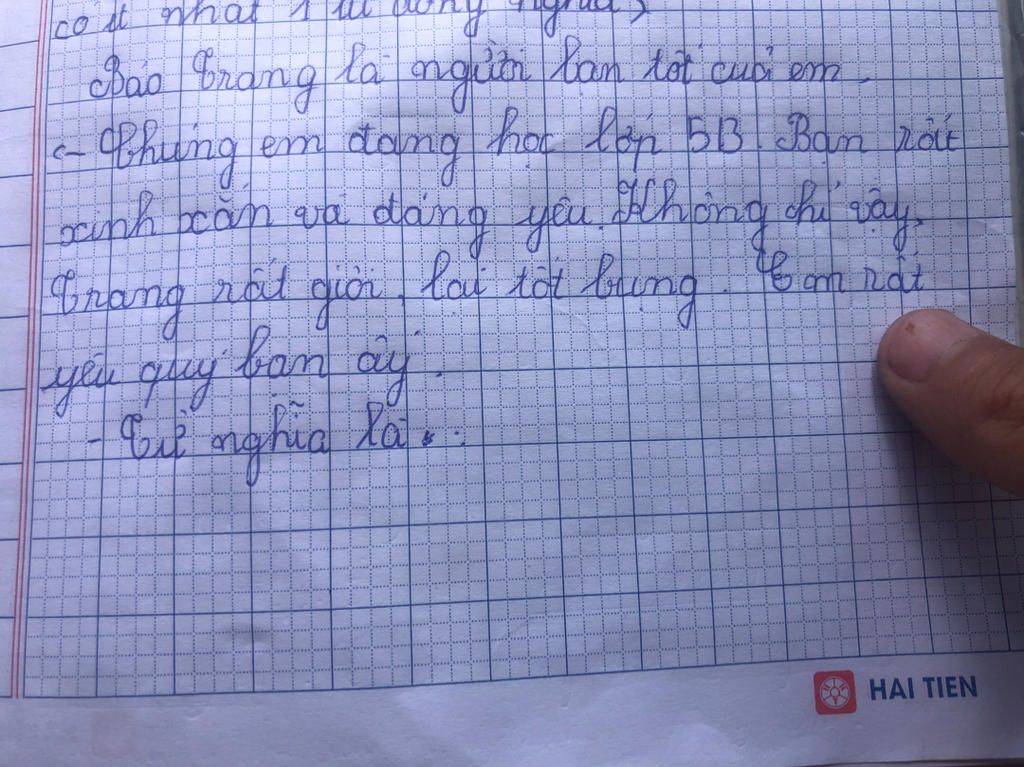 có ít nhất 1 từ đồng nghĩa)
Bảo Trang là người bạn tốt của em.
Chúng em đang học lớp 5B. Bạn rất
xinh xắn và đáng yêu. Không chỉ vậy,
Trang rất giỏi, lại tốt bụng. Em rất
yêu quý bạn ấy.
- Từ nghĩa là...
HAI TIEN